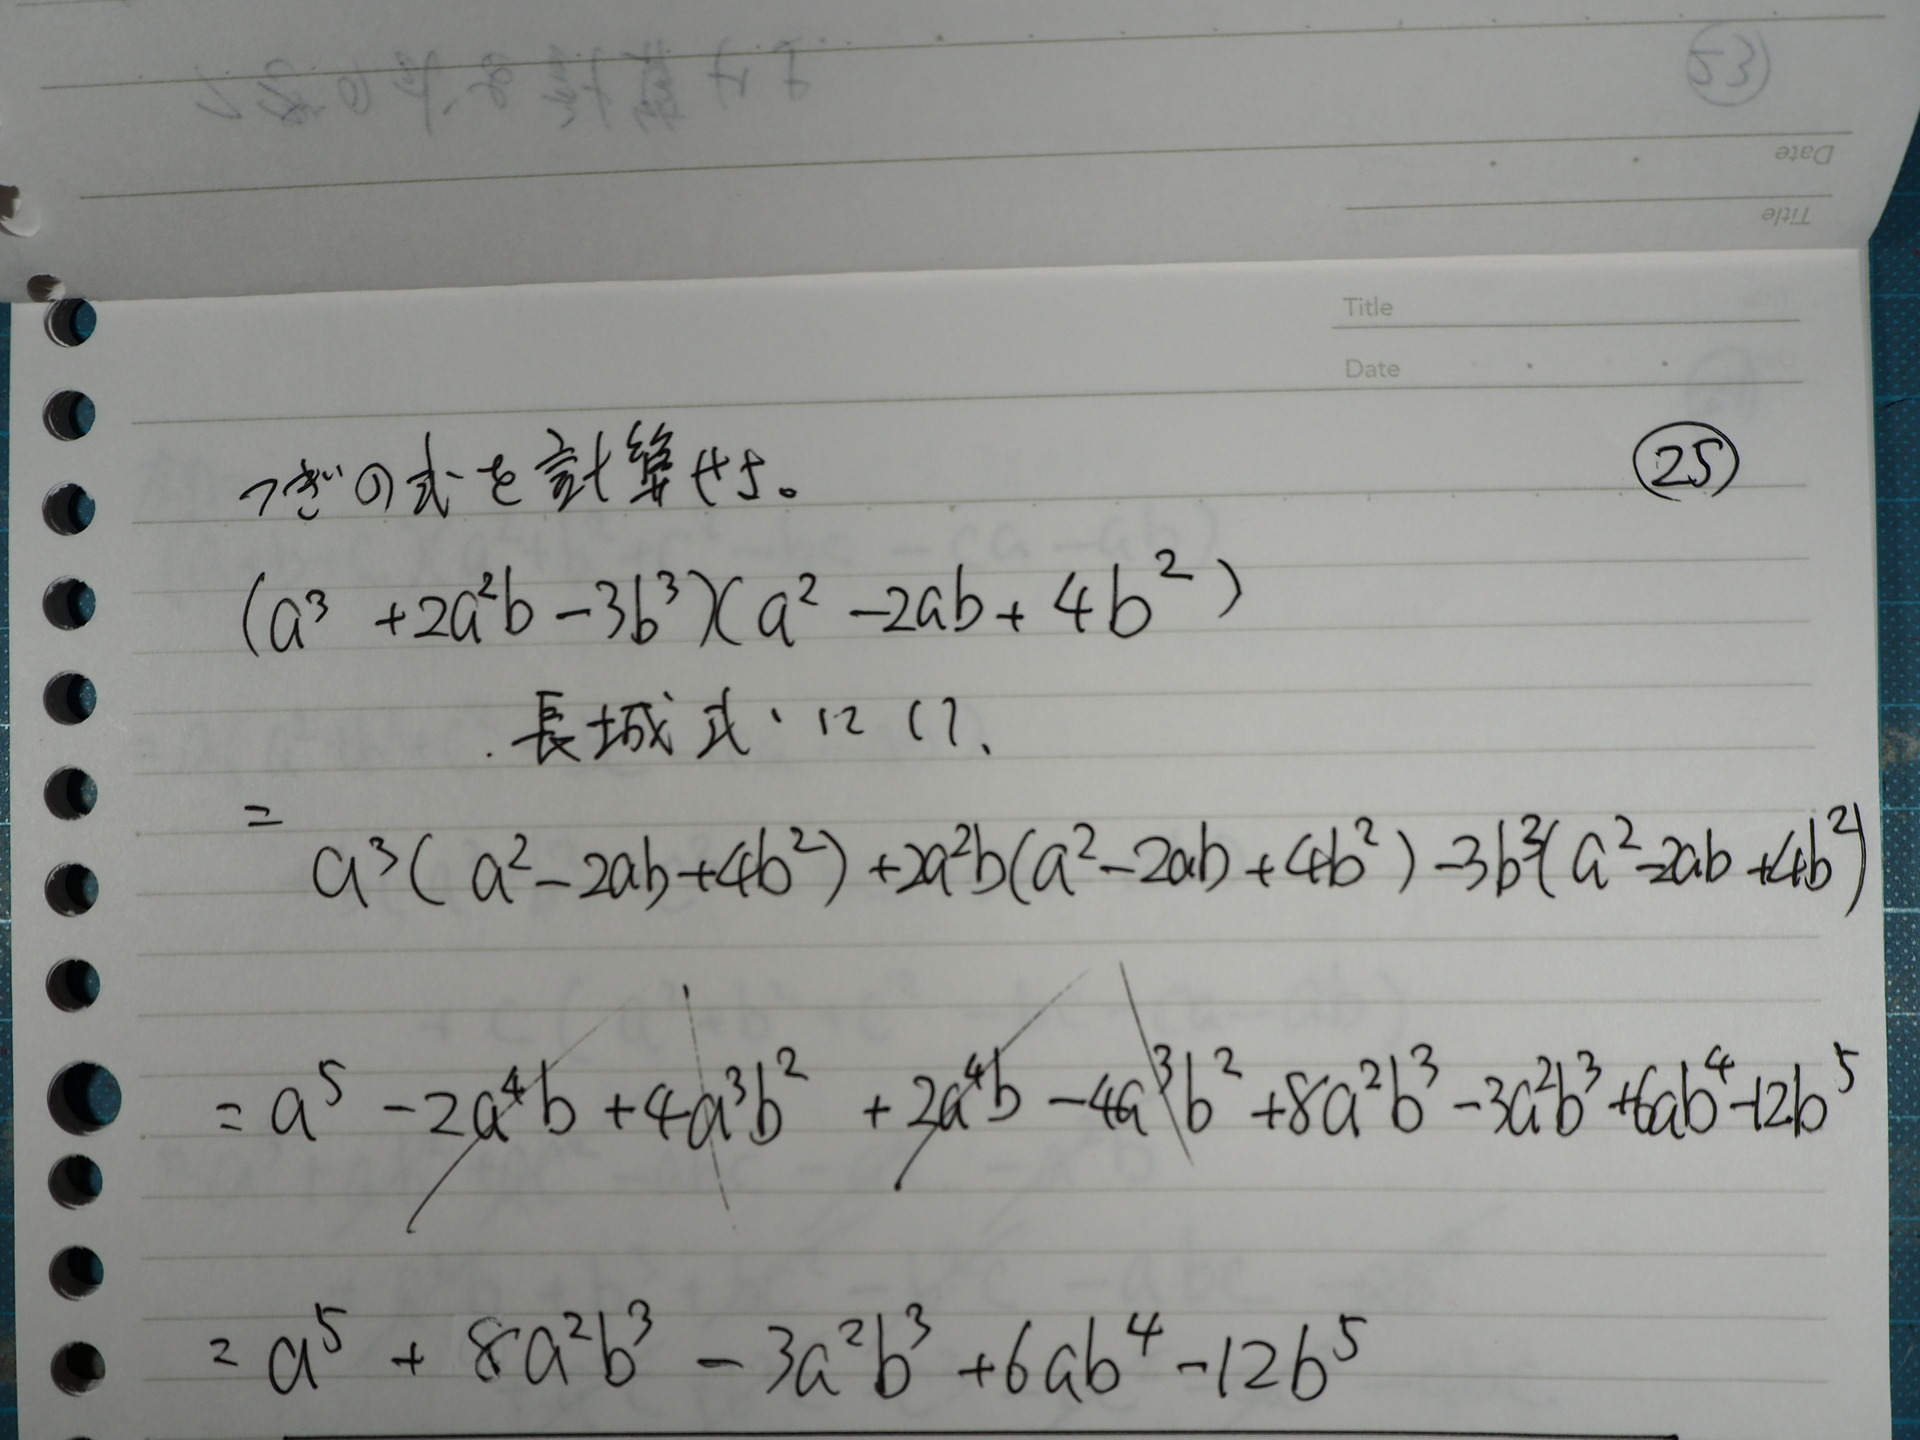 Date
Title
Title
Date
つぎの式を計算せよ。 25
(a³ +2a²b -3b³)(a² -2ab + 4b²)
長城式・に() 、
= a³(a²-2ab+4b²) +2a²b(a²-2ab+4b²) -3b³(a²-2ab+4b²)
= a⁵ -2a⁴b +4a³b² +2a⁴b -4a³b² +8a²b³ -3a²b³ +6ab⁴ -12b⁵
= a⁵ + 8a²b³ - 3a²b³ +6ab⁴ -12b⁵